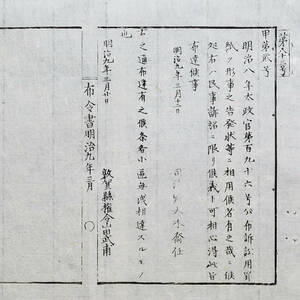 第八十三号
甲第貮号
明治八年太政官第百九十六号公布訴訟用罫
紙ノ形事之告発状等ニ相用候者有之哉ニ候
処右ハ民事訴訟ニ限リ候義ト可相心得此旨
布達候事
明治九年二月廿二日
右之通布達有之候条各小区毎浅相達スルモノ
也
明治九年三月廿日
敦賀縣権令山田武甫
布令書明治九年三月